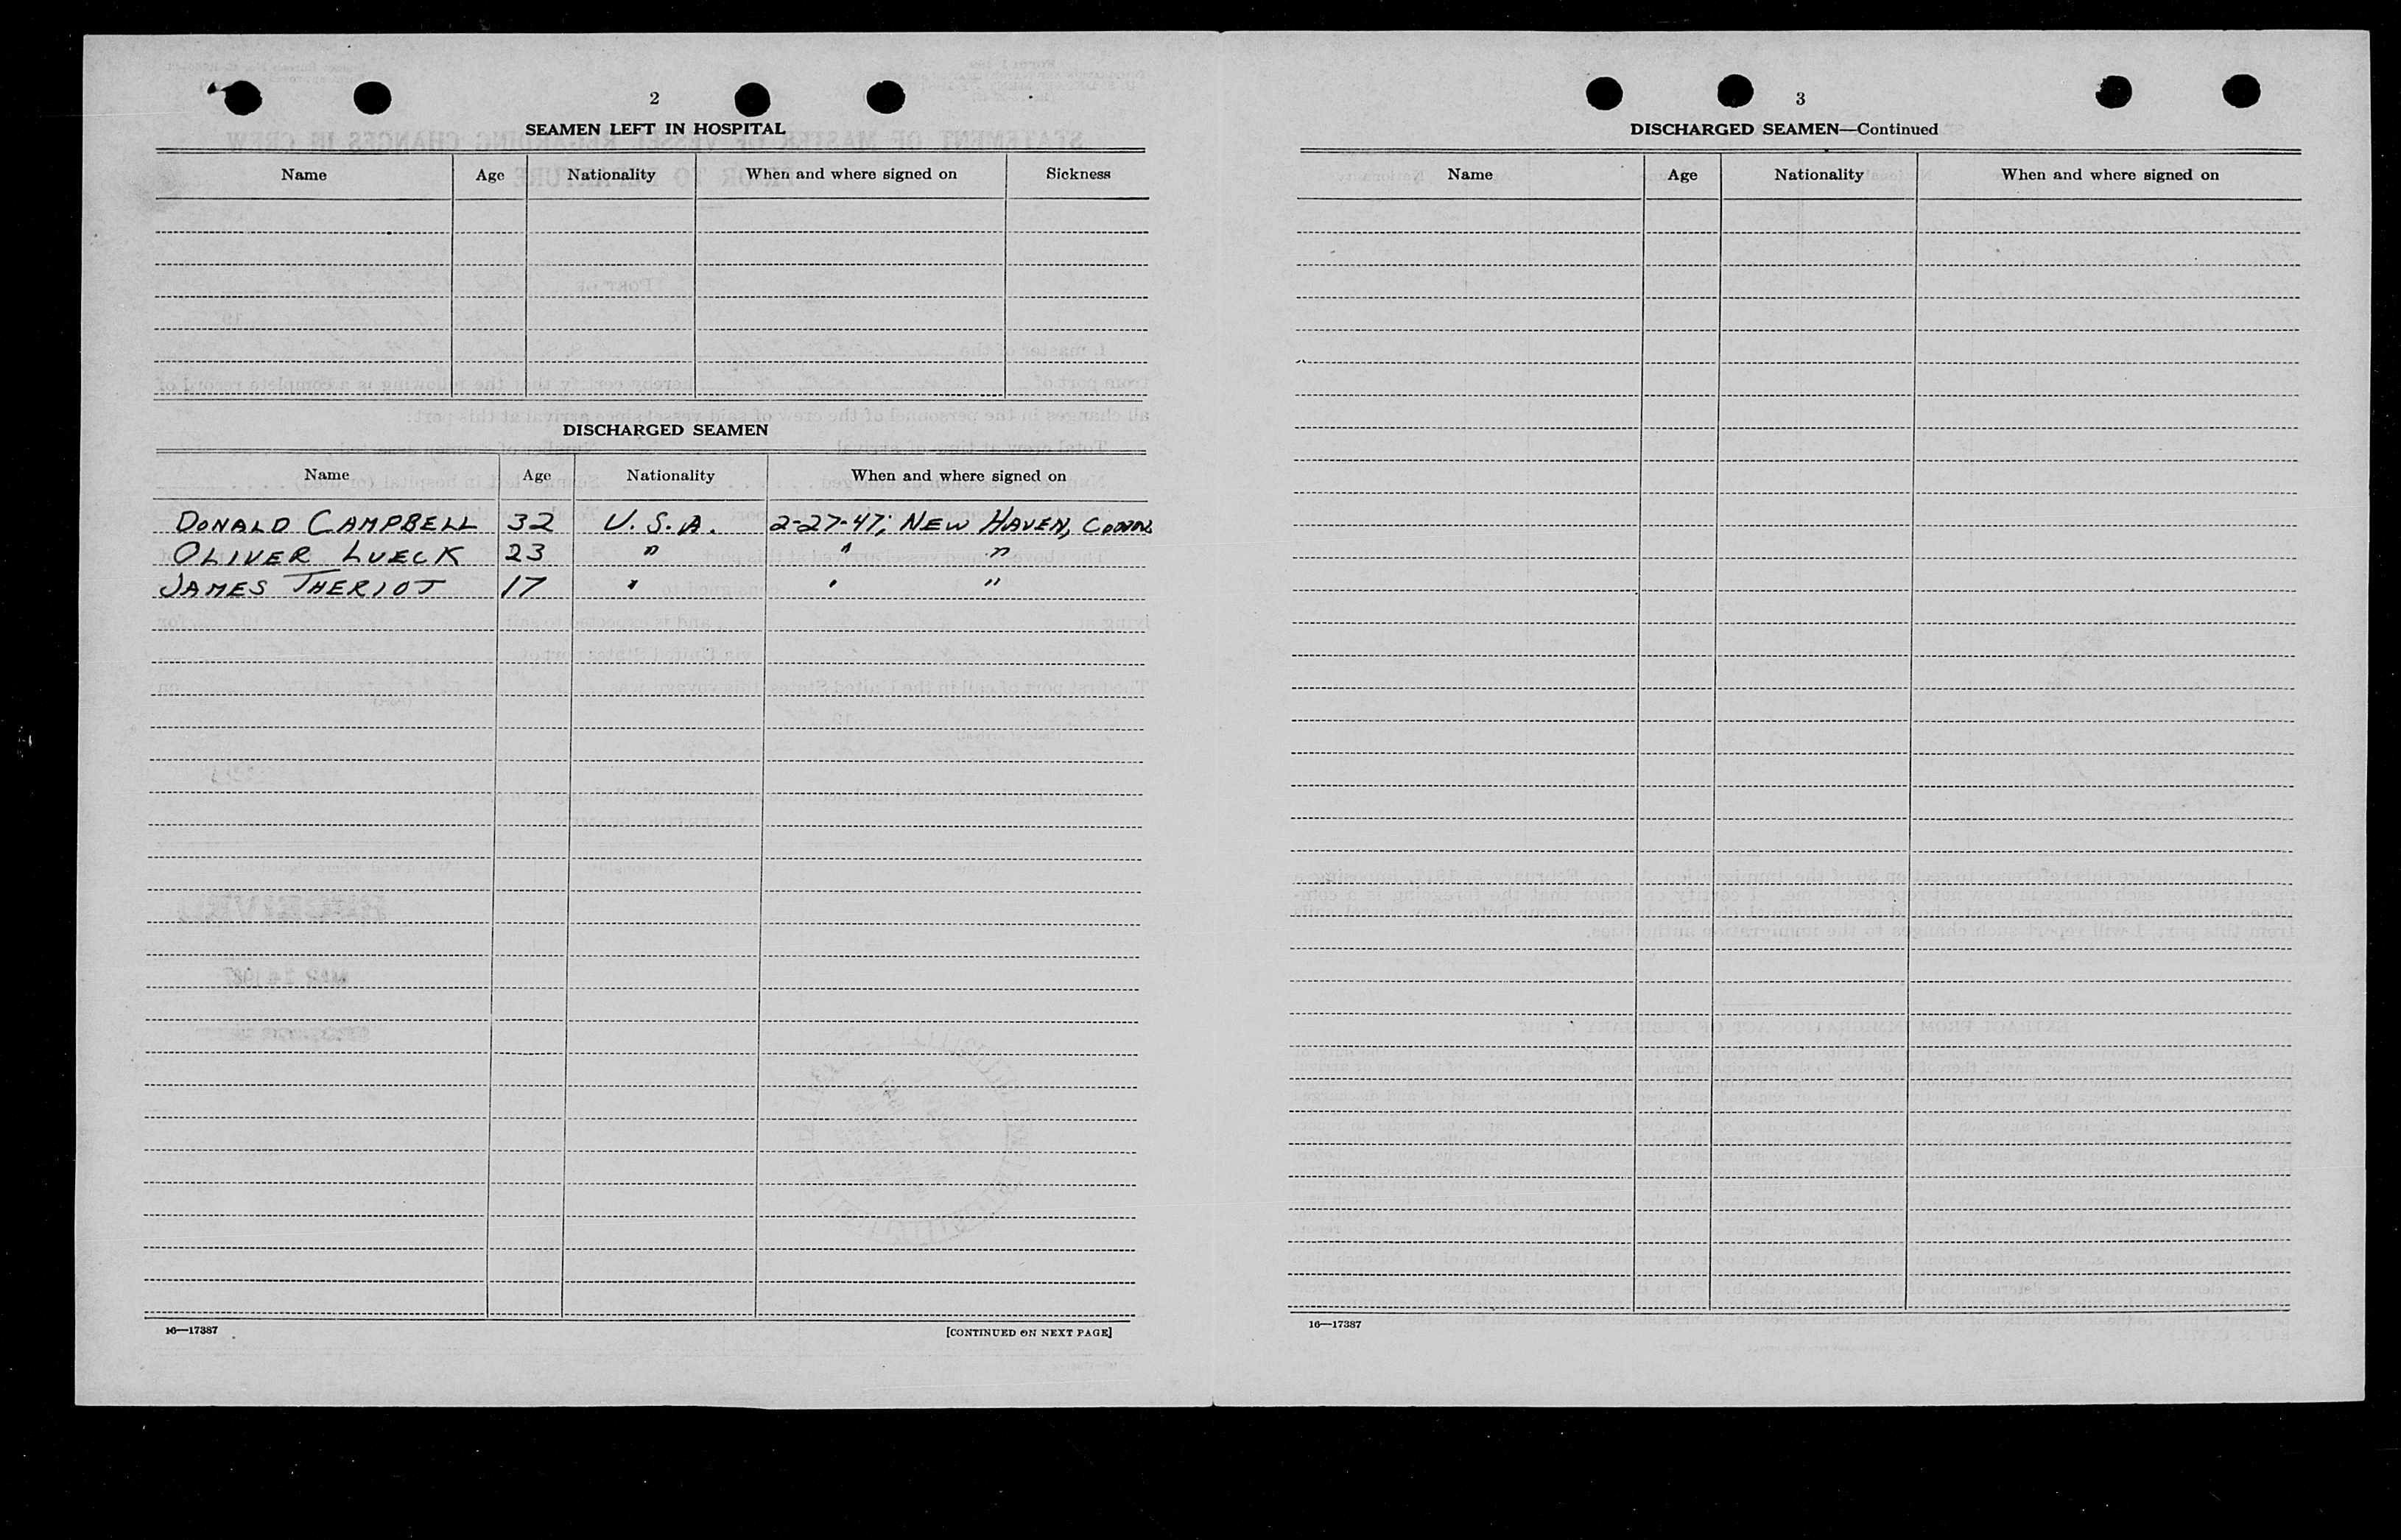 2
SEAMEN LEFT IN HOSPITAL
Name Age Nationality When and where signed on Sickness
DISCHARGED SEAMEN
Name Age Nationality When and where signed on
DONALD CAMPBELL 32 U.S.A. 2-27-47; NEW HAVEN, CONN.
OLIVER LUECK 23 " " "
JAMES THERIOT 17 " " "
16—17387
[CONTINUED ON NEXT PAGE]
3
DISCHARGED SEAMEN—Continued
Name Age Nationality When and where signed on
16—17387